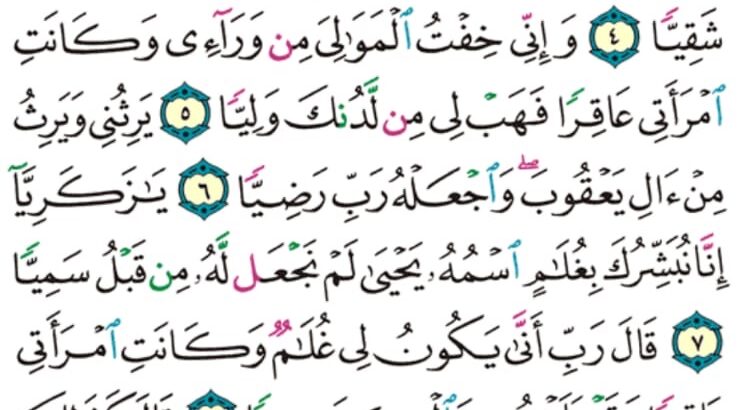 شَقِيًّا ٤ وَإِنِّي خِفْتُ ٱلْمَوَٰلِيَ مِن وَرَآءِى وَكَانَتِ
ٱمْرَأَتِى عَاقِرًا فَهَبْ لِى مِن لَّدُنكَ وَلِيًّا ٥ يَرِثُنِى وَيَرِثُ
مِنْ ءَالِ يَعْقُوبَ ۖ وَٱجْعَلْهُ رَبِّ رَضِيًّا ٦ يَٰزَكَرِيَّآ
إِنَّا نُبَشِّرُكَ بِغُلَٰمٍ ٱسْمُهُۥ يَحْيَىٰ لَمْ نَجْعَل لَّهُۥ مِن قَبْلُ سَمِيًّا
٧ قَالَ رَبِّ أَنَّىٰ يَكُونُ لِى غُلَٰمٌ وَكَانَتِ ٱمْرَأَتِى